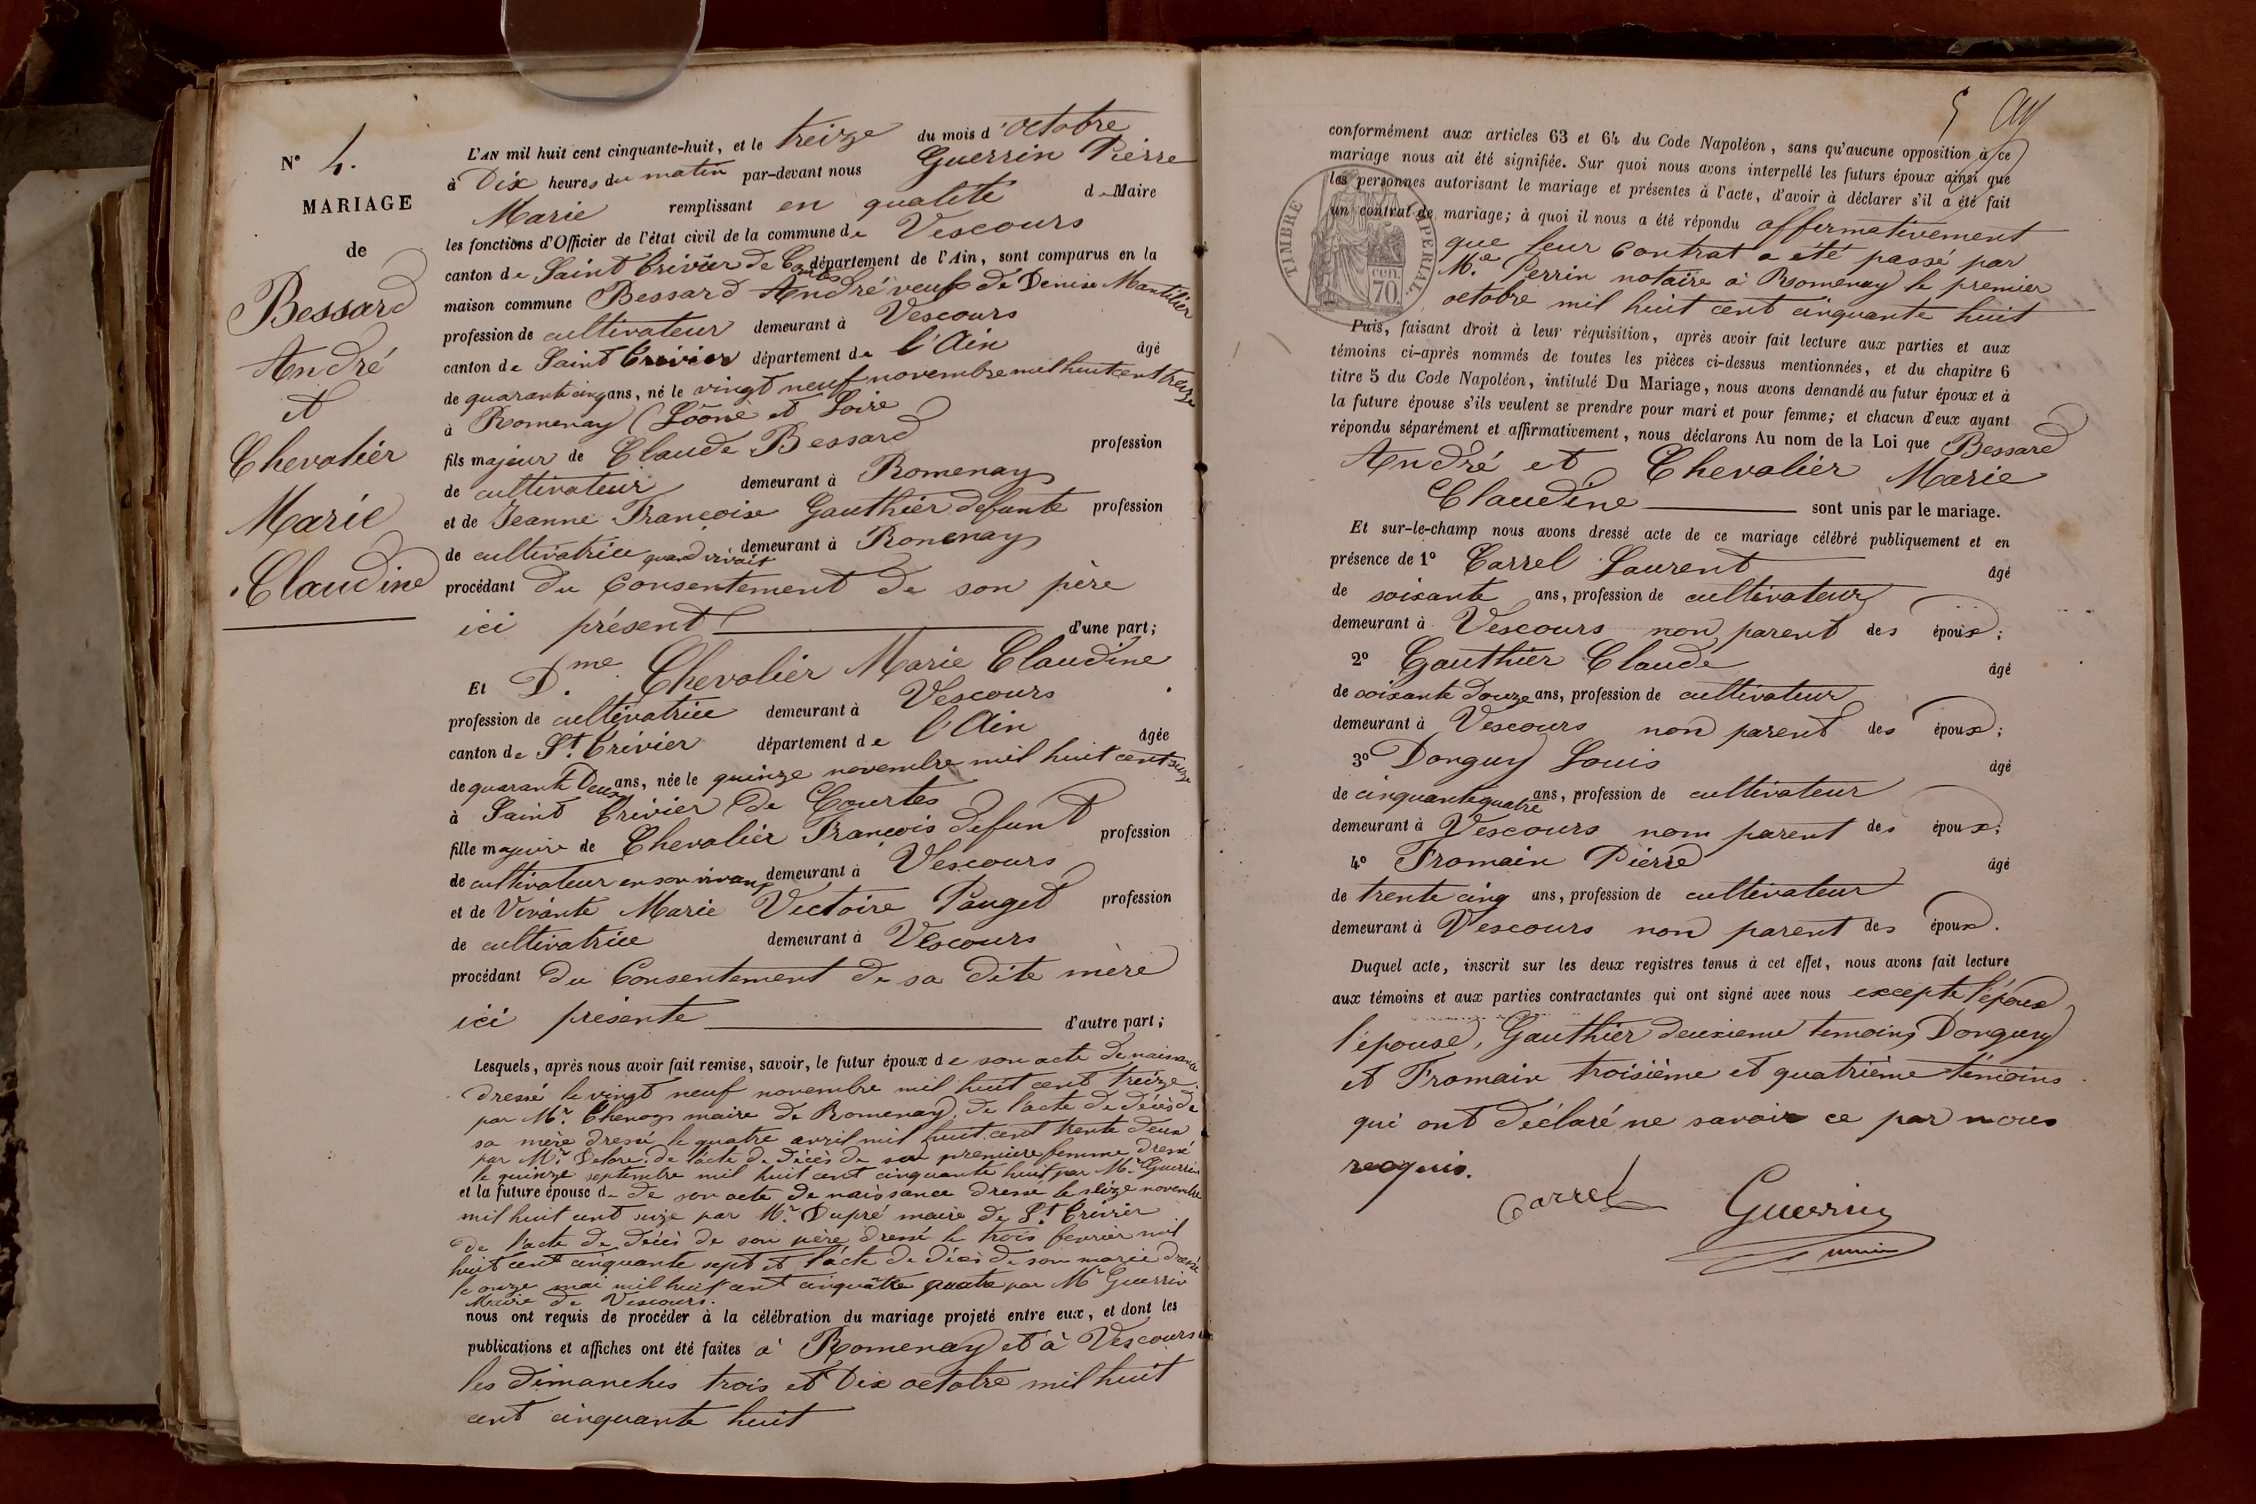 N° 4.
MARIAGE
de
Bessard
André
et
Chevalier
Marie
Claudine
L'AN mil huit cent cinquante-huit, et le treize du mois d'octobre
à Dix heures du matin par-devant nous Guerrin Pierre
Marie remplissant en qualité de Maire
les fonctions d'Officier de l'état civil de la commune de Vescours
canton de Saint Trivier de Courtes département de l'Ain, sont comparus en la
maison commune Bessard André veuf de Denise Mantilier
profession de cultivateur demeurant à Vescours
canton de Saint Trivier département de l'Ain âgé
de quarante cinq ans, né le vingt neuf novembre mil huit cent treize
à Romenay (Sôone et Loire
fils majeur de Claude Bessard profession
de cultivateur demeurant à Romenay
et de Jeanne Françoise Gauthier defunte profession
de cultivatrice quand vivait demeurant à Romenay
procédant du consentement de son père
ici présent d'une part;
Et D.me Chevalier Marie Claudine
profession de cultivatrice demeurant à Vescours
canton de St. Trivier département de l'Ain âgée
de quarante Deux ans, née le quinze novembre mil huit cent seize
à Saint Trivier de Courtes
fille majeure de Chevalier François défunt profession
de cultivateur en son vivant demeurant à Vescours
et de Vivante Marie Victoire Pauget profession
de cultivatrice demeurant à Vescours
procédant du Consentement de sa dite mère
ici présente d'autre part;
Lesquels, après nous avoir fait remise, savoir, le futur époux de son acte de naissance
dressé le vingt neuf novembre mil huit cent treize
par Mr. Chenays maire de Romenay, de l'acte de décès de
sa mère dressé le quatre avril mil huit cent trente deux
par Mr. Delore. de l'acte de décès de sa premiere femme dressé
le quinze septembre mil huit cent cinquante huit par Mr. Guerrin
et la future épouse de de son acte de naissance dresse le seize novembre
mil huit cent seize par Mr. Dupré maire de St. Trivier
de l'acte de décès de son père dressé le trois fevrier mil
huit cent cinquante sept et l'acte de décès de son marie dressé
le onze mai mil huit cent cinquante quatre par Mr Guerrin
Maire de Vescours.
nous ont requis de procéder à la célébration du mariage projeté entre eux, et dont les
publications et affiches ont été faites à Romenay et à Vescours
les dimanches trois et Dix octobre mil huit
cent cinquante huit
5
conformément aux articles 63 et 64 du Code Napoléon, sans qu'aucune opposition à ce
mariage nous ait été signifiée. Sur quoi nous avons interpellé les futurs époux ainsi que
les personnes autorisant le mariage et présentes à l'acte, d'avoir à déclarer s'il a été fait
un contrat de mariage; à quoi il nous a été répondu affirmativement
que leur contrat a été passé par
M.e Perrin notaire à Romenay le premier
octobre mil huit cent cinquante huit
TIMBRE IMPERIAL
70 cen.
Puis, faisant droit à leur réquisition, après avoir fait lecture aux parties et aux
témoins ci-après nommés de toutes les pièces ci-dessus mentionnées, et du chapitre 6
titre 5 du Code Napoléon, intitulé Du Mariage, nous avons demandé au futur époux et à
la future épouse s'ils veulent se prendre pour mari et pour femme; et chacun d'eux ayant
répondu séparément et affirmativement, nous déclarons Au nom de la Loi que Bessard
André et Chevalier Marie
Claudine sont unis par le mariage.
Et sur-le-champ nous avons dressé acte de ce mariage célébré publiquement et en
présence de 1° Carrel Laurent âgé
de soixante ans, profession de cultivateur
demeurant à Vescours non parent des époux;
2° Gauthier Claude âgé
de soixante douze ans, profession de cultivateur
demeurant à Vescours non parent des époux;
3° Donguy Louis âgé
de cinquante quatre ans, profession de cultivateur
demeurant à Vescours nom parent des époux;
4° Fromain Pierre âgé
de trente cinq ans, profession de cultivateur
demeurant à Vescours non parent des époux.
Duquel acte, inscrit sur les deux registres tenus à cet effet, nous avons fait lecture
aux témoins et aux parties contractantes qui ont signé avec nous excepte l'époux
l'épouse, Gauthier deuxieme temoins Donguy
et Fromain troisième et quatrième témoins
qui ont déclaré ne savoir ce par nous
requis.
Carrel Guerrin